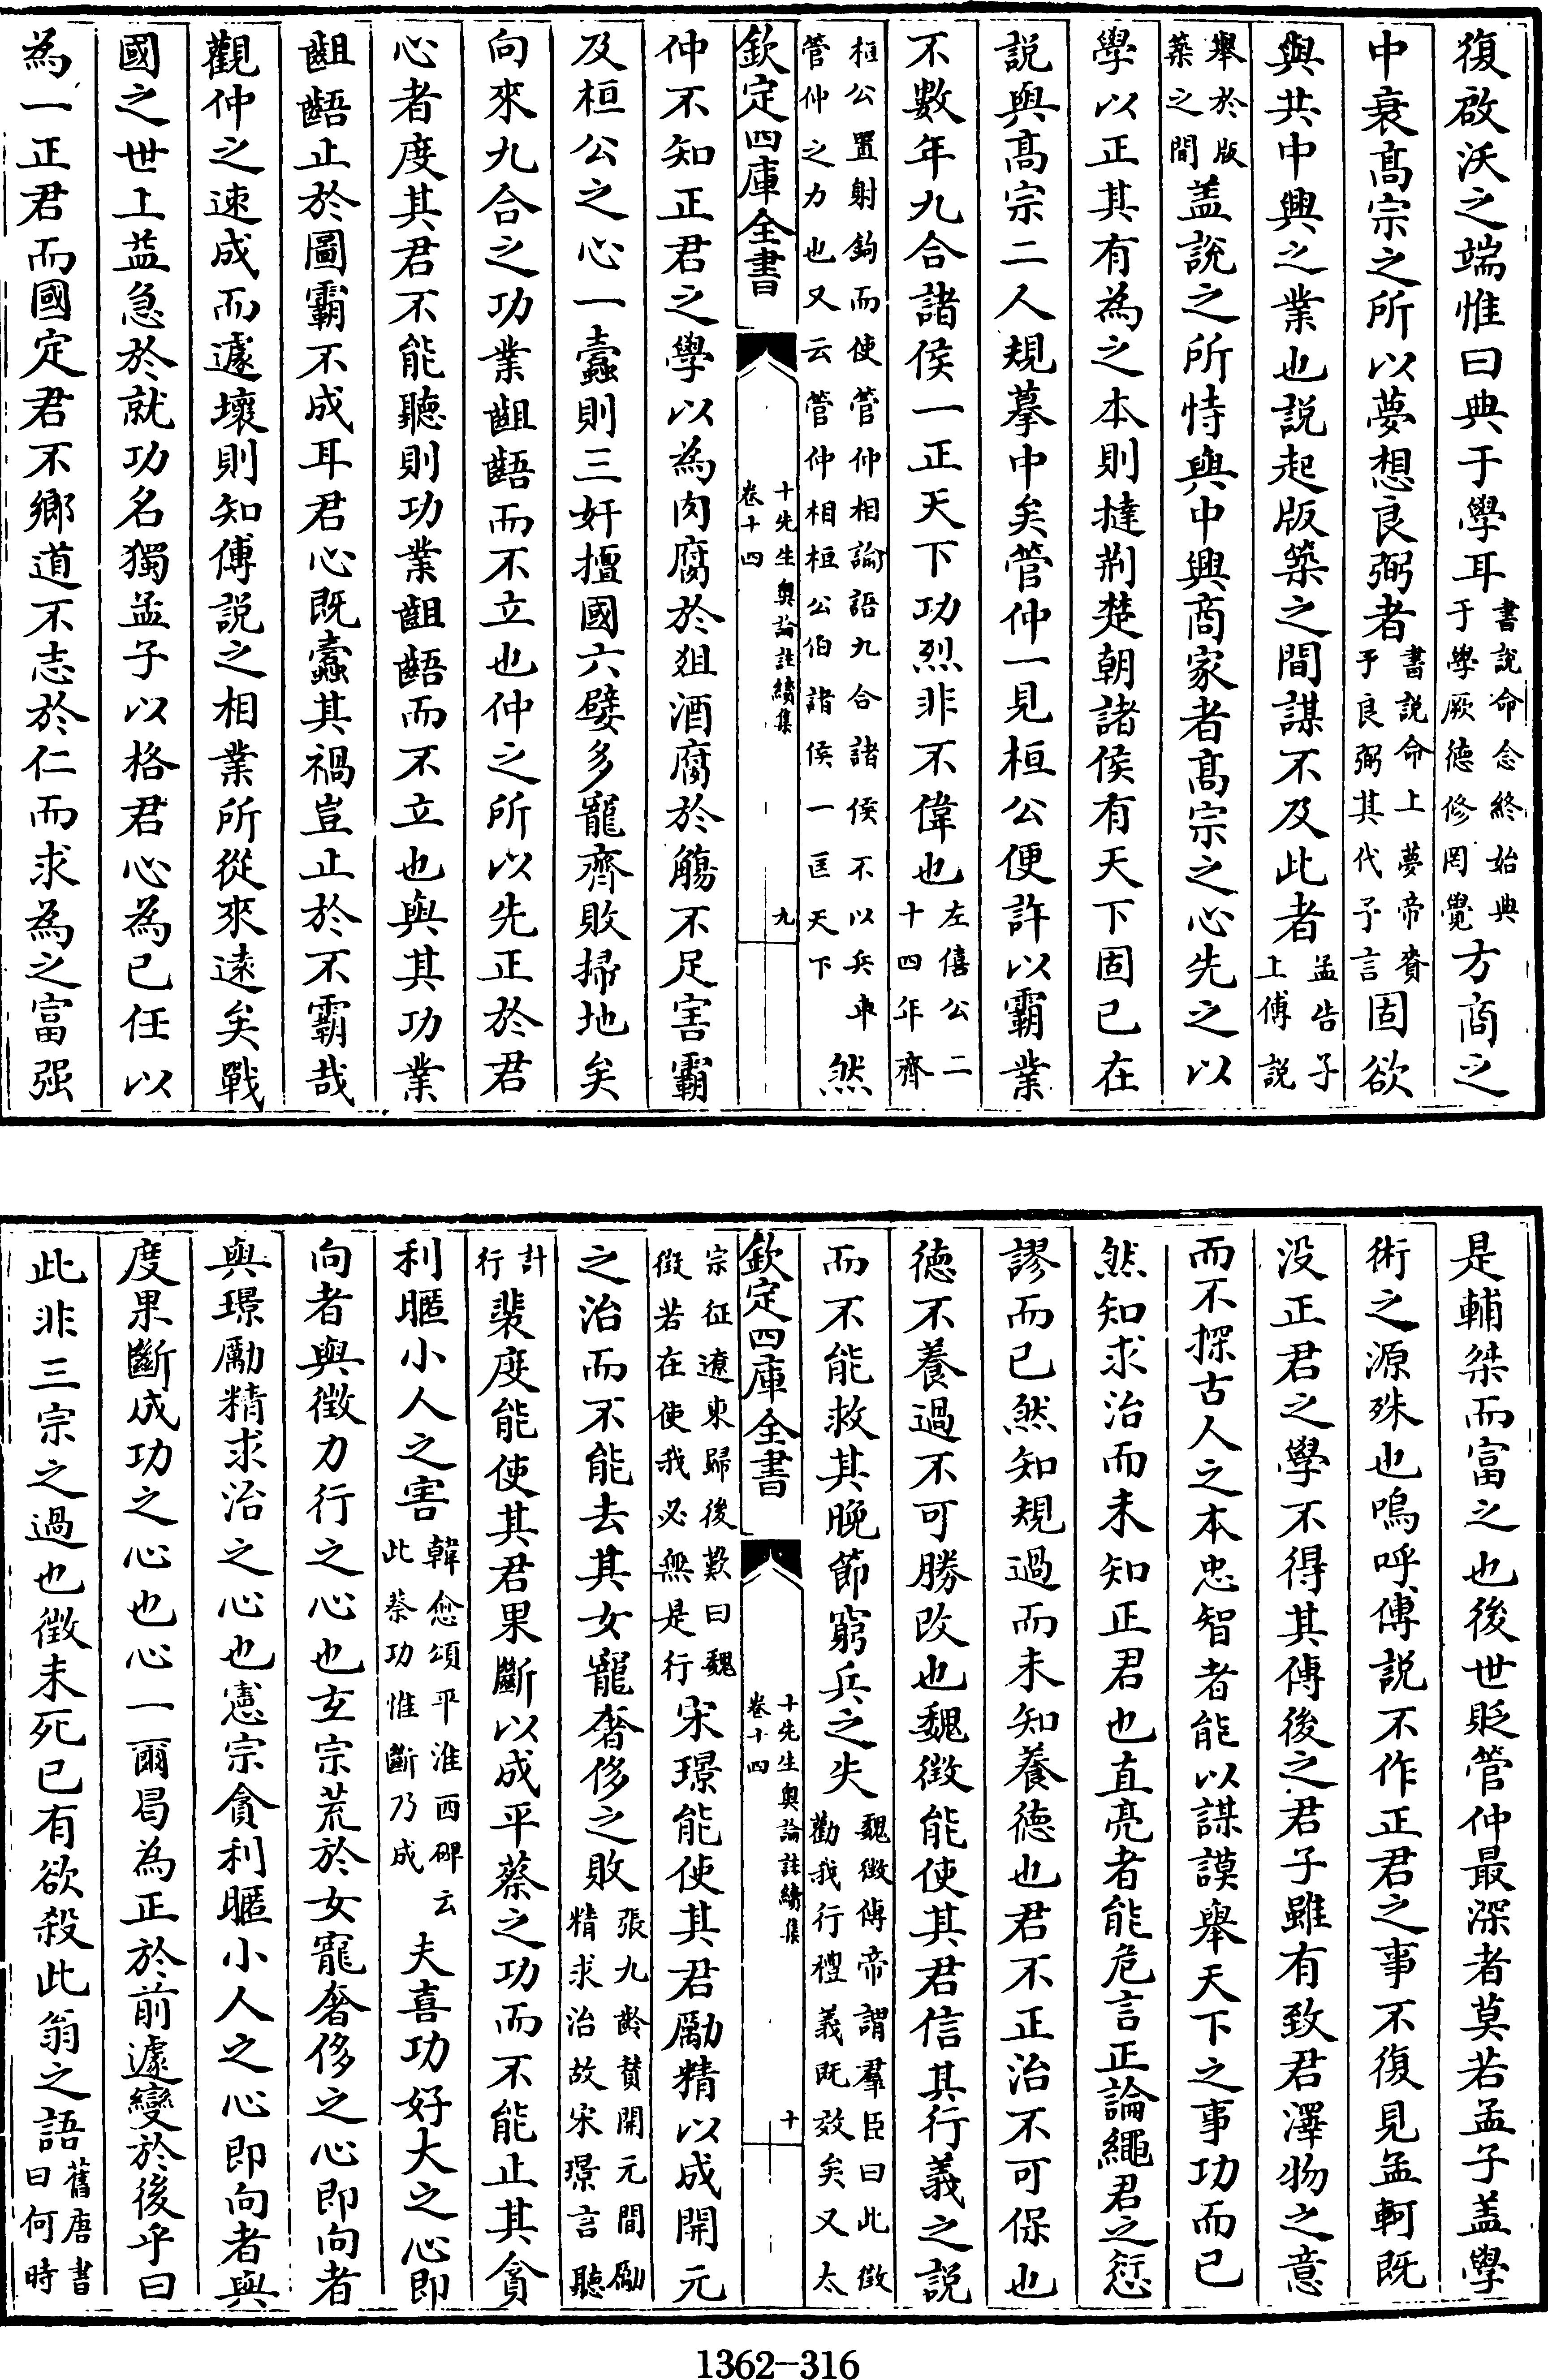 復啟沃之端惟曰典于學耳書說命念終始典于學厥德修罔覺方商之
中衰高宗之所以夢想良弼者書說命上夢帝賚予良弼其代予言固欲
與共中興之業也說起版築之間謀不及此者孟告子上傅說
舉於版築之間盖說之所恃與中興商家者高宗之心先之以
學以正其有為之本則撻荆楚朝諸侯有天下固已在
說與高宗二人規摹中矣管仲一見桓公便許以霸業
不數年九合諸侯一正天下功烈非不偉也左僖公二十四年齊
桓公置射鉤而使管仲相論語九合諸侯不以兵車管仲之力也又云管仲相桓公伯諸侯一匡天下然
欽定四庫全書
十先生奧論註續集
卷十四
九
仲不知正君之學以為肉腐於俎酒腐於觴不足害霸
及桓公之心一蠧則三奸擅國六嬖多寵齊敗掃地矣
向來九合之功業齟齬而不立也仲之所以先正於君
心者度其君不能聽則功業齟齬而不立也與其功業
齟齬止於圖霸不成耳君心既蠧其禍豈止於不霸哉
觀仲之速成而遽壞則知傅說之相業所從來遠矣戰
國之世上益急於就功名獨孟子以格君心為已任以
為一正君而國定君不鄉道不志於仁而求為之富强
是輔桀而富之也後世貶管仲最深者莫若孟子盖學
術之源殊也嗚呼傅説不作正君之事不復見孟軻既
没正君之學不得其傳後之君子雖有致君澤物之意
而不探古人之本忠智者能以謀謨舉天下之事功而已
然知求治而未知正君也直亮者能危言正論繩君之愆
謬而已然知規過而未知養德也君不正治不可保也
德不養過不可勝改也魏徵能使其君信其行義之說
而不能救其晚節窮兵之失魏徵傳帝謂羣臣曰此徵勸我行禮義既效矣又太
欽定四庫全書
十先生奧論註續集
卷十四
十
宗征遼東歸後歎曰魏徵若在使我必無是行宋璟能使其君勵精以成開元
之治而不能去其女寵奢侈之敗張九齡贊開元間勵精求治故宋璟言聽
計行裴度能使其君果斷以成平蔡之功而不能止其貪
利暱小人之害韓愈頌平淮西碑云此蔡功惟斷乃成夫喜功好大之心即
向者與徵力行之心也玄宗荒於女寵奢侈之心即向者
與璟勵精求治之心也憲宗貪利暱小人之心即向者與
度果斷成功之心也心一爾曷為正於前遽變於後乎曰
此非三宗之過也徵未死已有欲殺此翁之語舊唐書曰何時
1362-316